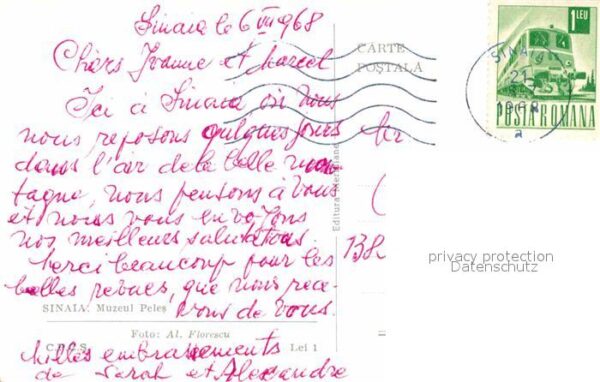 Sinaia le 6 VII 1968
Chers Ivonne et Marcel
Ici à Sinaia où nous
nous reposons quelques jours
dans l'air de la belle mon-
tagne, nous pensons à vous
et nous vous envoyons
nos meilleurs salutations.
Merci beaucoup pour les
belles revues, que nous rece-
vons de vous.
SINAIA: Muzeul Peleș
Foto: Al. Florescu
C.P.C.S. Lei 1
Milles embrassements
de Sarah et Alexandre
CARTE
POȘTALĂ
Editura Meridiane
1 LEU
POSTA ROMANA
SINAIA
21
1968
a
privacy protection
Datenschutz